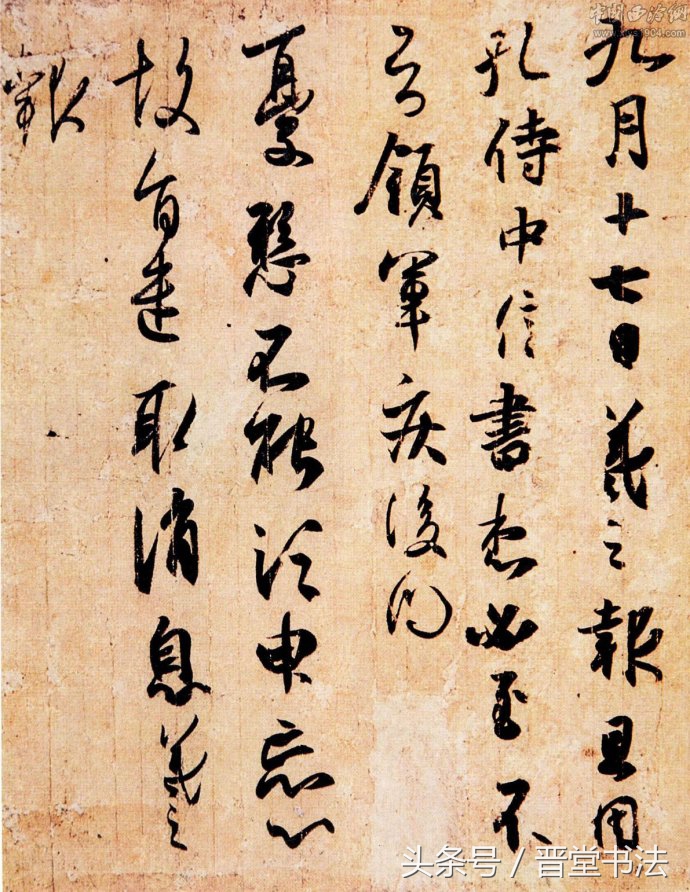 九月十七日羲之報且因
孔侍中信書想必至不
知領軍疾後問
憂懸不能須臾忘心
故旨遣取消息羲之
報
中国西泠网
www.xlys1904.com
头条号 / 晋堂书法